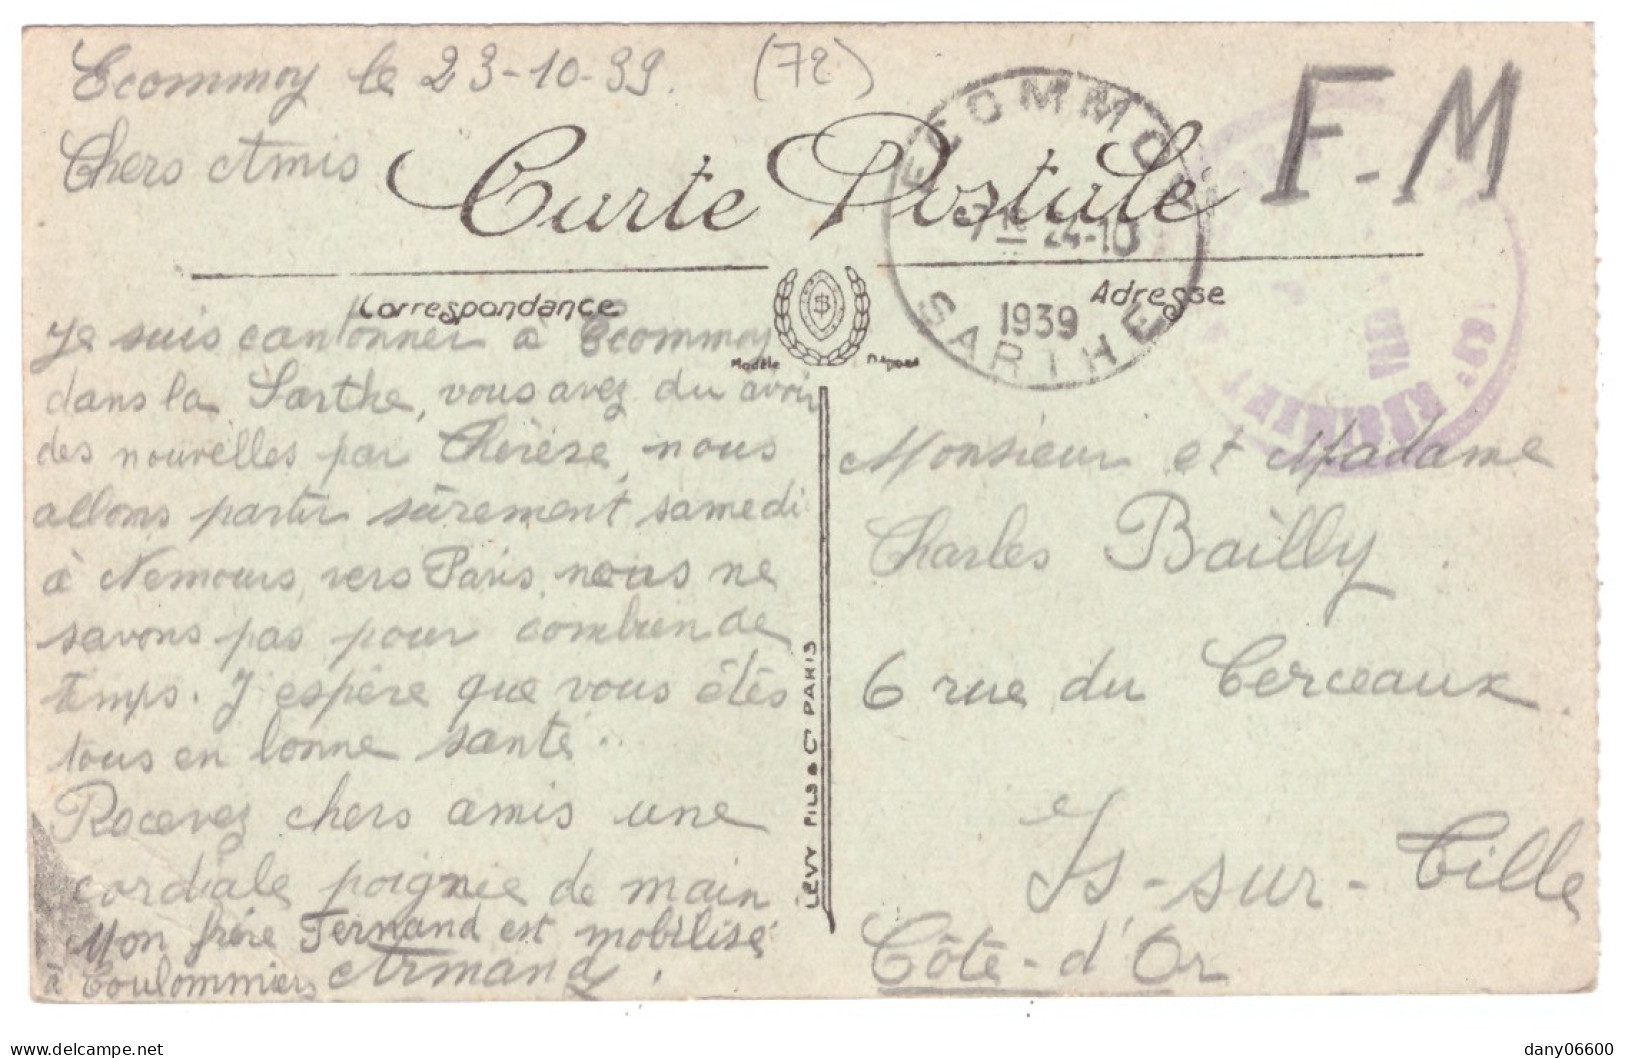 Ecommoy le 23-10-39. (72)
Chers Amis
F-M
Carte Postale
ECOMMOY
7H 24-10
1939
SARTHE
Correspondance
Adresse
Modèle
Je suis cantonner à Ecommoy
dans la Sarthe, vous avez du avoir
des nouvelles par Thérèse, nous
allons partir sûrement samedi
à Nemours, vers Paris, nous ne
savons pas pour combien de
temps. J'espère que vous êtês
tous en bonne santé.
Recevez chers amis une
cordiale poignée de main
Mon frère Fernand est mobilisé
à Coulommiers Armand.
LÉVY FILS & Cie PARIS
Monsieur et Madame
Charles Bailly.
6 rue du Cerceaux.
Is-sur-Tille
Côte-d'Or
delcampe.net
dany06600